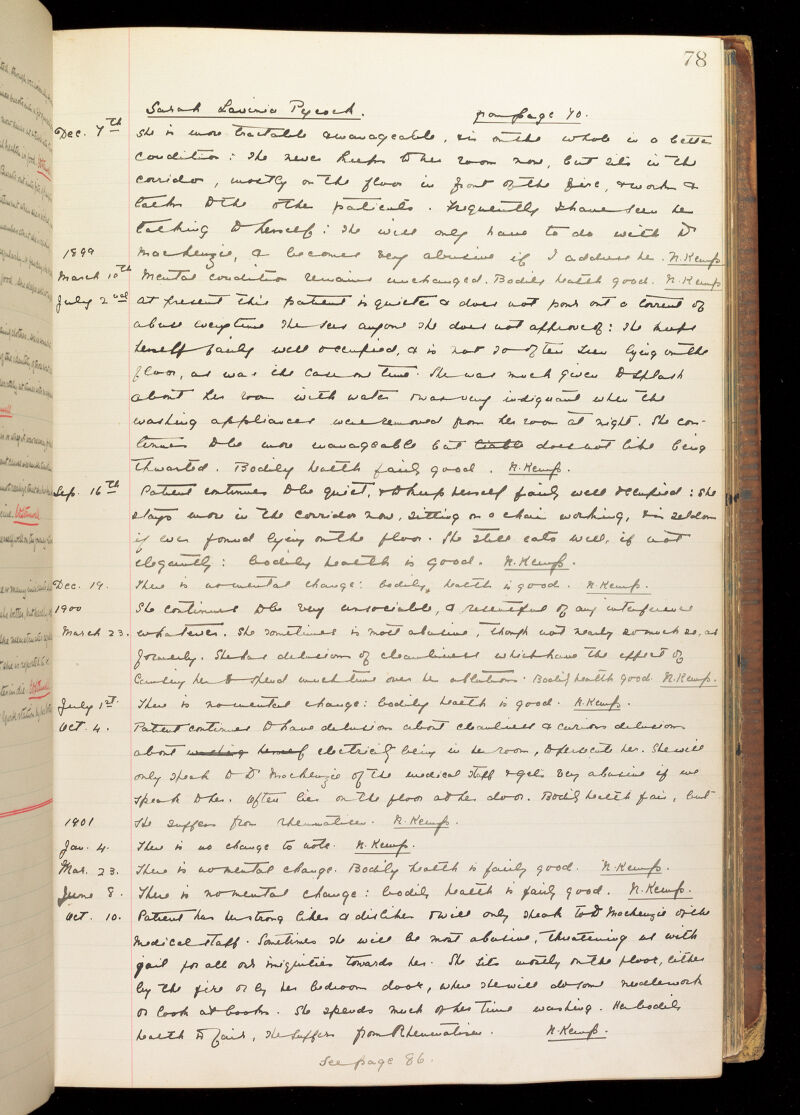 78
Sarah Lavinia Pycock. from page 70.
Dec. 7th She is more tractable & manageable, & is on the whole in a better
condition: she never keeps to her room now, but sits in the
corridor, mostly on the floor in front of the fire, & works &
talks to the other patients. Frequently I have seen her
talking to herself: she will only have to do with Dr
1899 Mackenzie, & becomes very abusive if I address her. N. Kemp
March 10th Mental condition remains unchanged. Bodily health good. N. Kemp
July 2nd At present this patient is quieter & does not pour out a torrent of
abuse everytime she sees anyone she does not approve of: she keeps
herself fairly well occupied, & is not so often seen lying on the
floor, as was the case one time. She was much given to splash
about her room with water & was very indignant when the
washing appliances were removed from her room at night. She con-
tinues to be more manageable but does not like being
thwarted. Bodily health fairly good. N. Kemp.
Sep. 16th Patient continues to be quiet, & to keep herself fairly well occupied: she
stays more in the corridor now, sitting on a chair working, & is seldom
if ever found lying on the floor. She still eats well, if not
elegantly: bodily health is good. N. Kemp.
Dec. 19. There is no mental change: bodily health is good. N. Kemp.
1900 She continues to be very unsociable, & resentful of any interference
March 23. whatever. She sometimes is most abusive, though not nearly so much so, as
formerly. She has delusions of cleanliness which have the effect of
causing her to spend much time over her ablutions. Bodily health good. N. Kemp.
July 1st. There is no mental change: bodily health is good. N. Kemp.
Oct. 4. Patient continues to have delusions about cleanliness & curious delusions
about washing herself electricity being in her room, to persecute her. She will
only speak to Dr Mackenzie of the medical staff & gets very abusive if we
speak to her. Often lies on the floor at her door. Bodily health fair, but
1901 she suffers from rheumatism. N. Kemp.
Jan. 4. There is no change to note. N. Kemp.
Mar. 23. There is no mental change. Bodily health is fairly good. N. Kemp.
June 8. There is no mental change: bodily health is fairly good. N. Kemp.
Oct. 10. Patient has her strong likes & dislikes & will only speak to Dr Mackenzie of the
medical staff. Sometimes she will be most abusive, threatening us with
gaol for all our iniquities towards her. She sits mostly on the floor, either
by the fire or by her bedroom door, where she will do some needlework
or look at books. She spends much of her time washing. Her bodily
health is fair, she suffers from Rheumatism. N. Kemp.
See page 86.